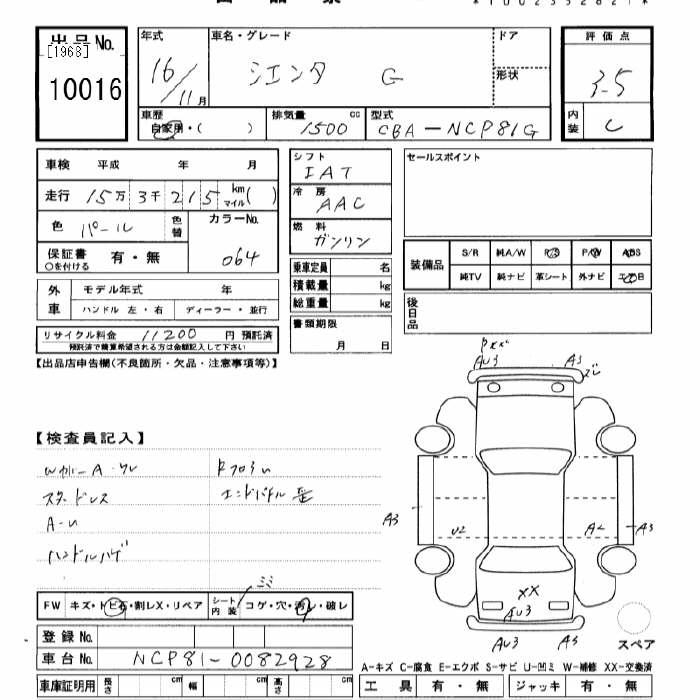 出品No.
[1968]
10016
年式
16/11月
車名・グレード
シエンタ G
ドア
形状
評価点
3.5
内装
C
車歴
自家用・( )
排気量 cc
1500
型式
CBA-NCP81G
車検 平成 年 月
走行 15万3千215 km マイル( )
色 パール 色替
カラーNo.
064
保証書 有・無
○を付ける
外車 モデル年式 年
ハンドル 左・右 ディーラー・並行
リサイクル料金 11200 円 預託済
預託済で精算希望される方は金額記入して下さい
シフト
IAT
冷房
AAC
燃料
ガソリン
乗車定員 名
積載量 kg
総重量 kg
書類期限
月 日
セールスポイント
装備品 S/R 純A/W P/S P/W ABS
純TV 純ナビ 革シート 外ナビ エアB
後日品
【出品店申告欄(不良箇所・欠品・注意事項等)】
【検査員記入】
スタッドレス
A-U
ハンドルハゲ
AU3 A3
A3 U2 A2 A3
XX
AU3
AU3 A3
スペア
FW キズ・トビ石・割レX・リペア シート内装 コゲ・穴・汚レ・破レ
登録No.
車台No. NCP81-0082928
車庫証明用 長さ cm 幅 cm 高さ cm
A-キズ C-腐食 E-エクボ S-サビ U-凹ミ W-補修 XX-交換済
工具 有・無 ジャッキ 有・無